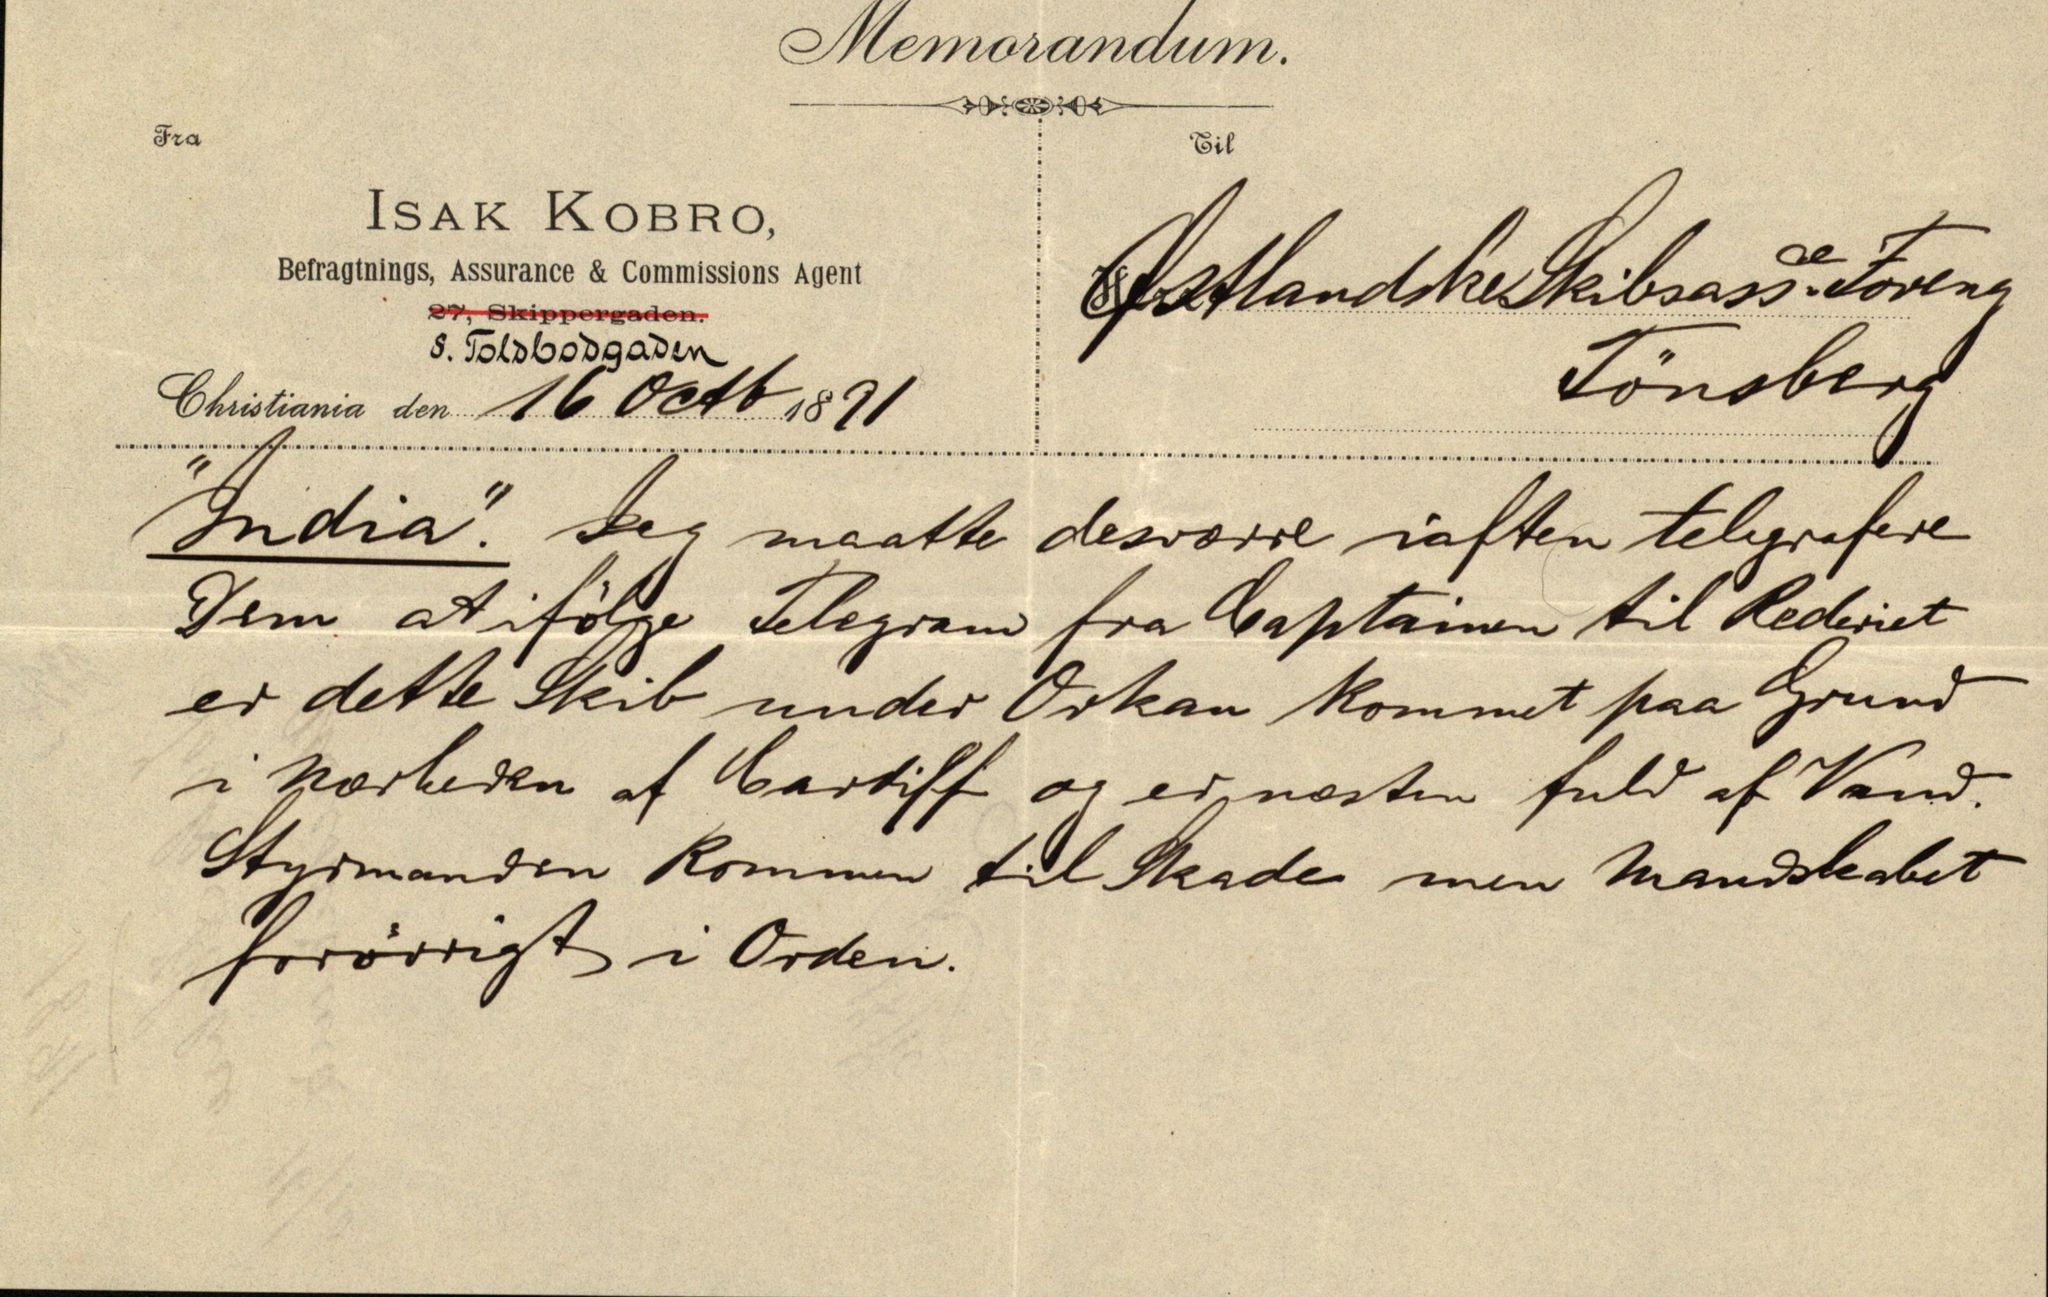 Memorandum.
Fra
Til
ISAK KOBRO,
Befragtnings, Assurance & Commissions Agent
27, Skippergaden.
8. Toldbodgaden
Christiania den 16 Octb 1891
Østlandske Skibsassce Foreng
Tönsberg
"India". Jeg maatte desværre iaften telegrafere
Dem at ifölge Telegram fra Captainen til Rederiet
er dette Skib under Orkan kommet paa Grund
i Nærheden af Cardiff og er næsten fuld af Vand.
Styrmanden kommen til Skade men Mandskabet
forövrigt i Orden.